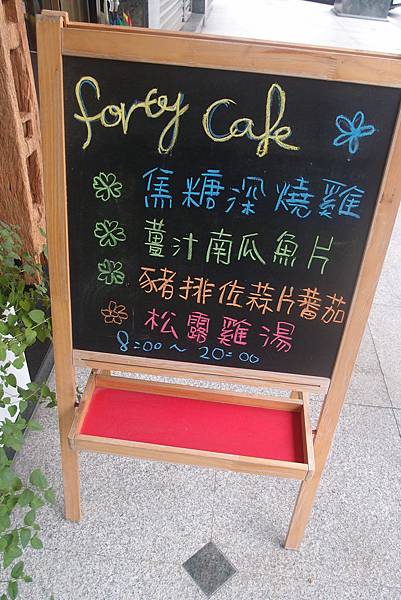 forty cafe
焦糖深燒雞
薑汁南瓜魚片
豬排佐蒜片蕃茄
松露雞湯
8:00~20:00